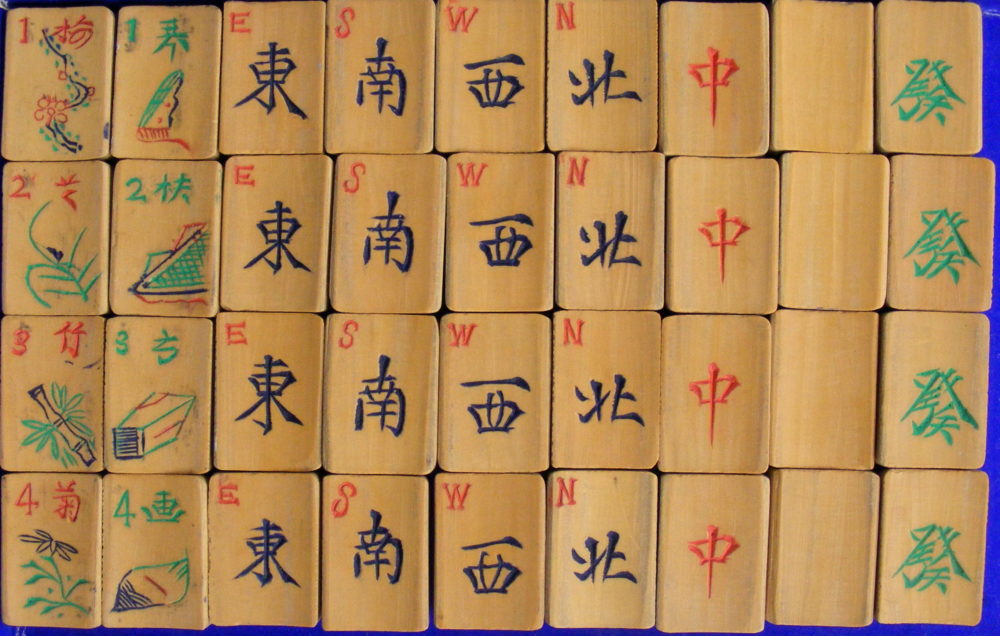 1 梅 1 琴 E S W N
東 南 西 北 中 發
2 2 E S W N
東 南 西 北 中 發
3 竹 3 E S W N
東 南 西 北 中 發
4 菊 4 画 E S W N
東 南 西 北 中 發